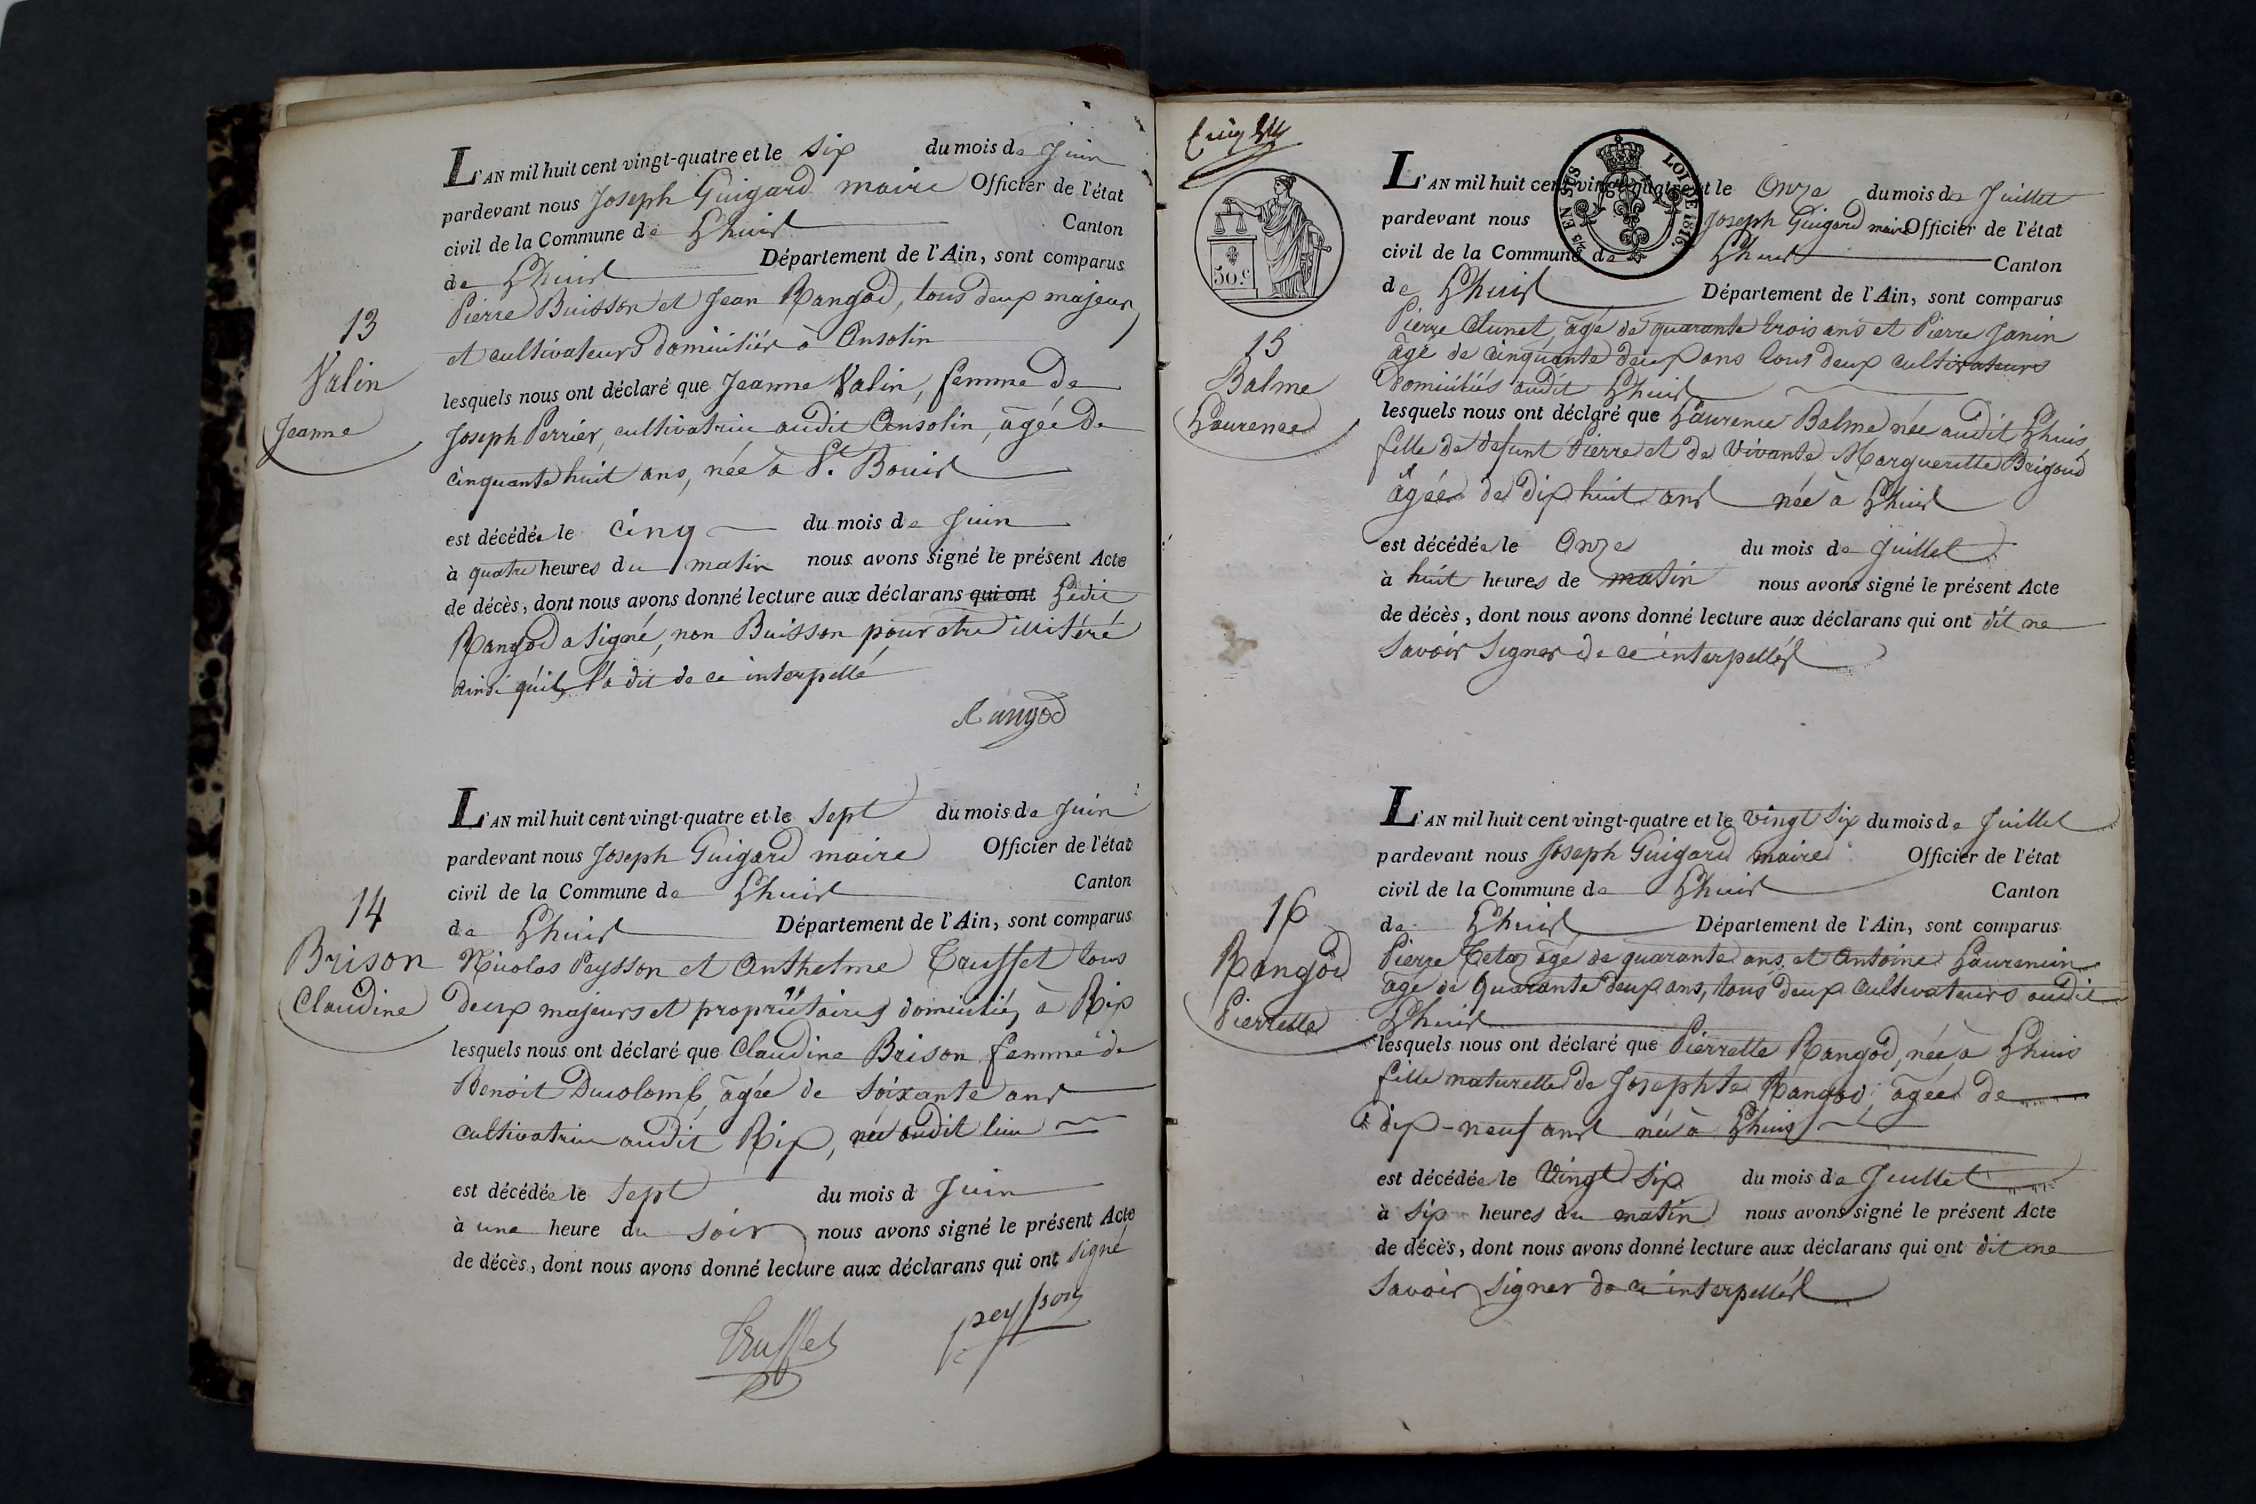 L'AN mil huit cent vingt-quatre et le six du mois de Juin
pardevant nous Joseph Guigard maire Officier de l'état
civil de la Commune de Lhuis Canton
de Lhuis Département de l'Ain, sont comparus
Pierre Buisson et Jean Rangod, tous deux majeurs
et cultivateurs domiciliés à Ansolin
lesquels nous ont déclaré que Jeanne Valin, femme de
Joseph Perrier, cultivatrice audit Ansolin, âgée de
cinquante huit ans, née à St. Bouis
est décédée le cinq du mois de Juin
à quatre heures du matin nous avons signé le présent Acte
de décès, dont nous avons donné lecture aux déclarans qui ont Ledit
Rangod a signé, non Buisson pour etre illitéré
ainsi qu'il l'a dit de ce interpellé
Rangod
13
Valin
Jeanne
L'AN mil huit cent vingt-quatre et le sept du mois de Juin
pardevant nous Joseph Guigard maire Officier de l'état
civil de la Commune de Lhuis Canton
de Lhuis Département de l'Ain, sont comparus
Nicolas Peysson et Anthelme Truffet tous
deux majeurs et propriétaires domiciliés à Rix
lesquels nous ont déclaré que Claudine Brison femme de
Benoit Ducolomb, âgée de soixante ans
cultivatrice audit Rix, née audit lieu
est décédée le sept du mois d Juin
à une heure du soir nous avons signé le présent Acte
de décès, dont nous avons donné lecture aux déclarans qui ont signé
Truffet peysson
14
Brison
Claudine
50 c.
LOI DE 1816.
EN SUS
L'AN mil huit cent vingt-quatre et le Onze du mois de Juillet
pardevant nous Joseph Guigard maire Officier de l'état
civil de la Commune de Lhuis Canton
de Lhuis Département de l'Ain, sont comparus
Pierre Clunet, âgé de quarante trois ans et Pierre Janin
âgé de cinquante deux ans tous deux cultivateurs
domiciliés audit Lhuis
lesquels nous ont déclaré que Laurence Balme née audit Lhuis
fille de defunt Pierre et de vivante Margueritte Brigoud
âgée de dix huit ans née à Lhuis
est décédée le Onze du mois de Juillet
à huit heures de matin nous avons signé le présent Acte
de décès, dont nous avons donné lecture aux déclarans qui ont dit ne
savoir signer de ce interpellés
15
Balme
Laurence
L'AN mil huit cent vingt-quatre et le vingt six du mois de Juillet
pardevant nous Joseph Guigard maire Officier de l'état
civil de la Commune de Lhuis Canton
de Lhuis Département de l'Ain, sont comparus
Pierre âgé de quarante ans, et Antoine Laurencin
âgé de quarante deux ans, tous deux cultivateurs audit
Lhuis
lesquels nous ont déclaré que Pierrette Rangod, née à Lhuis
fille naturelle de Josephte Rangod, âgée de
dix-neuf ans née à Lhuis
est décédée le vingt six du mois de Juillet
à six heures du matin nous avons signé le présent Acte
de décès, dont nous avons donné lecture aux déclarans qui ont dit ne
savoir signer de ce interpellés
16
Rangod
Pierrette